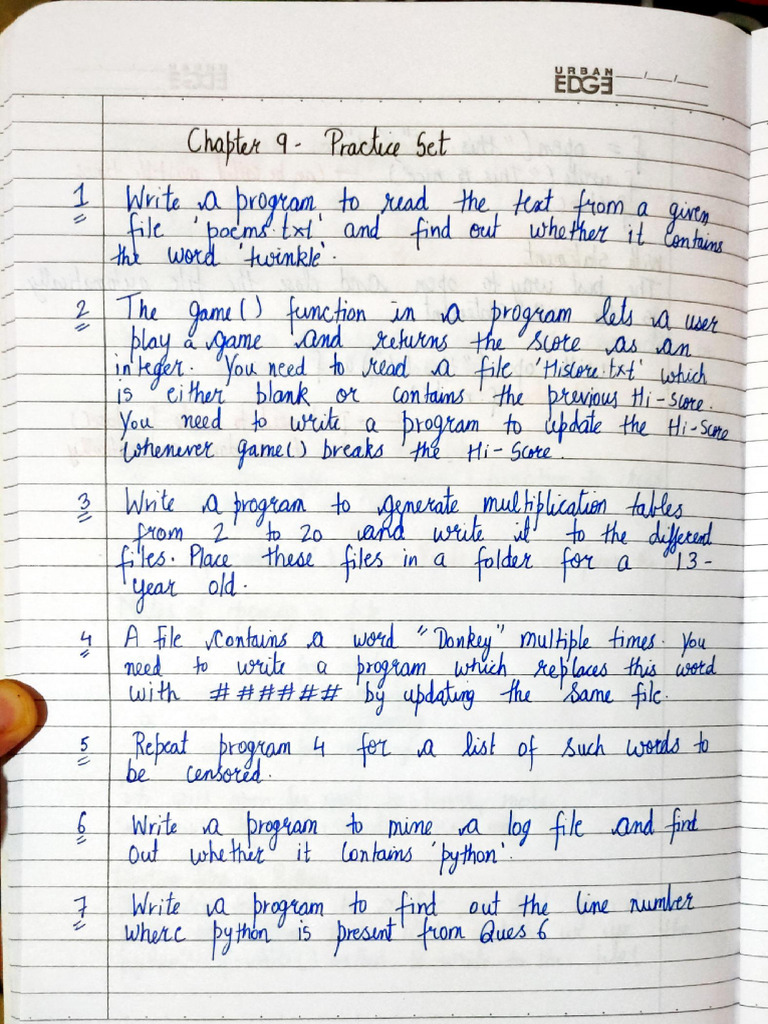 URBAN
EDGE
Chapter 9 - Practice Set
1 Write a program to read the text from a given
file 'poems.txt' and find out whether it contains
the word 'twinkle'.
2 The game() function in a program lets a user
play a game and returns the score as an
integer. You need to read a file 'Hiscore.txt' which
is either blank or contains the previous Hi-score.
You need to write a program to update the Hi-Score
whenever game() breaks the Hi-Score.
3 Write a program to generate multiplication tables
from 2 to 20 and write it to the different
files. Place these files in a folder for a 13-
year old.
4 A file contains a word "Donkey" multiple times. You
need to write a program which replaces this word
with ###### by updating the same file.
5 Repeat program 4 for a list of such words to
be censored.
6 Write a program to mine a log file and find
out whether it contains 'python'.
7 Write a program to find out the line number
where python is present from Ques 6